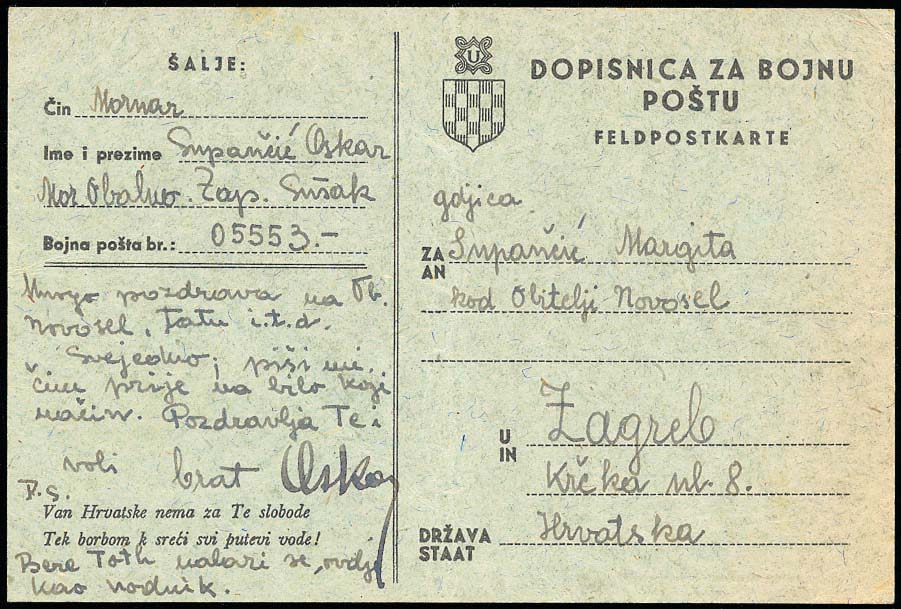 ŠALJE:
Čin Mornar
Ime i prezime Supančić Oskar
Mor Obalno. Zap. Sušak
Bojna pošta br.: 05553.-
Mnogo pozdrava na Ob.
Novosel, Tatu i.t.d.
Svejedno, piši mi.
čim prije na bilo koji
način. Pozdravlja Te i
voli brat Oskar
P.S.
Van Hrvatske nema za Te slobode
Tek borbom k sreći svi putevi vode!
Bere Toth nalazi se, ovdje
kao vodnik.
U
DOPISNICA ZA BOJNU
POŠTU
FELDPOSTKARTE
gdjica
ZA Supančić Margita
AN
kod Obitelji Novosel
U Zagreb
IN
Krčka ul. 8.
DRŽAVA Hrvatska
STAAT